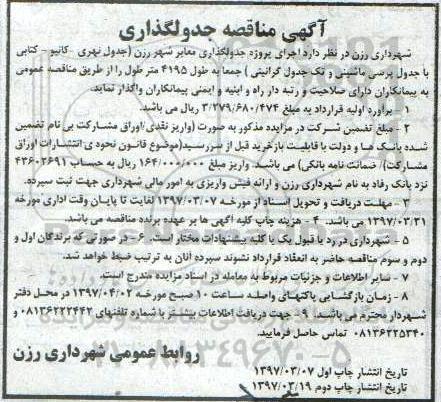 آگهی مناقصه جدولگذاری
شهرداری رزن در نظر دارد اجرای پروژه جدولگذاری معابر شهر رزن (جدول نهری - کانیو - کتابی
با جدول پرسی ماشینی و تک جدول گرانیتی ) جمعا به طول ۴۱۹۵ متر طول را از طریق مناقصه عمومی
به پیمانکاران دارای صلاحیت و رتبه دار راه و ابنیه و ایمنی پیمانکاران واگذار نماید.
۱ - برآورد اولیه قرارداد به مبلغ ۳/۲۷۹/۶۸۰/۴۷۴ ریال می باشد.
۲ - مبلغ تضمین شرکت در مزایده مذکور به صورت (واریز نقدی/اوراق مشارکت بی نام تضمین
شده بانک ها و دولت با قابلیت بازخرید قبل از سررسید(موضوع قانون نحوه ی انتشارات اوراق
مشارکت)/ ضمانت نامه بانکی) می باشد. واریز مبلغ ۱۶۴/۰۰۰/۰۰۰ ریال به حساب ۴۳۶۰۲۶۹۱
نزد بانک رفاه به نام شهرداری رزن و ارائه فیش واریزی به امور مالی شهرداری جهت ثبت سپرده.
۳ - مهلت دریافت و تحویل اسناد از مورخه ۱۳۹۷/۰۳/۰۷ لغایت تا پایان وقت اداری مورخه
۱۳۹۷/۰۳/۳۱ می باشد. ۴ - هزینه چاپ کلیه آگهی ها بر عهده برنده مناقصه می باشد.
۵ - شهرداری در رد یا قبول یک یا کلیه پیشنهادات مختار است. ۶ - در صورتی که برندگان اول و
دوم و سوم مناقصه حاضر به انعقاد قرارداد نشوند سپرده آنان به ترتیب ضبط خواهد شد.
۷ - سایر اطلاعات و جزئیات مربوط به معامله در اسناد مزایده مندرج است.
۸ - زمان بازگشایی پاکتهای واصله ساعت ۱۰ صبح مورخه ۱۳۹۷/۰۴/۰۲ در محل دفتر
شهردار محترم می باشد. ۹ - جهت دریافت اطلاعات بیشتر با شماره تلفنهای ۰۸۱۳۶۲۲۲۴۴۲ و
۰۸۱۳۶۲۲۵۳۴۰ تماس حاصل فرمایید.
روابط عمومی شهرداری رزن
تاریخ انتشار چاپ اول ۱۳۹۷/۰۳/۰۷
تاریخ انتشار چاپ دوم ۱۳۹۷/۰۳/۱۹
ParsNamadData
۰۲۱-۸۸۳۴۹۶۷۰-۵